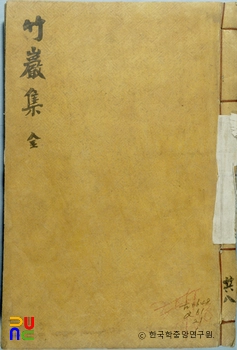 竹巖集
全
共八
ⓒ 한국학중앙연구원